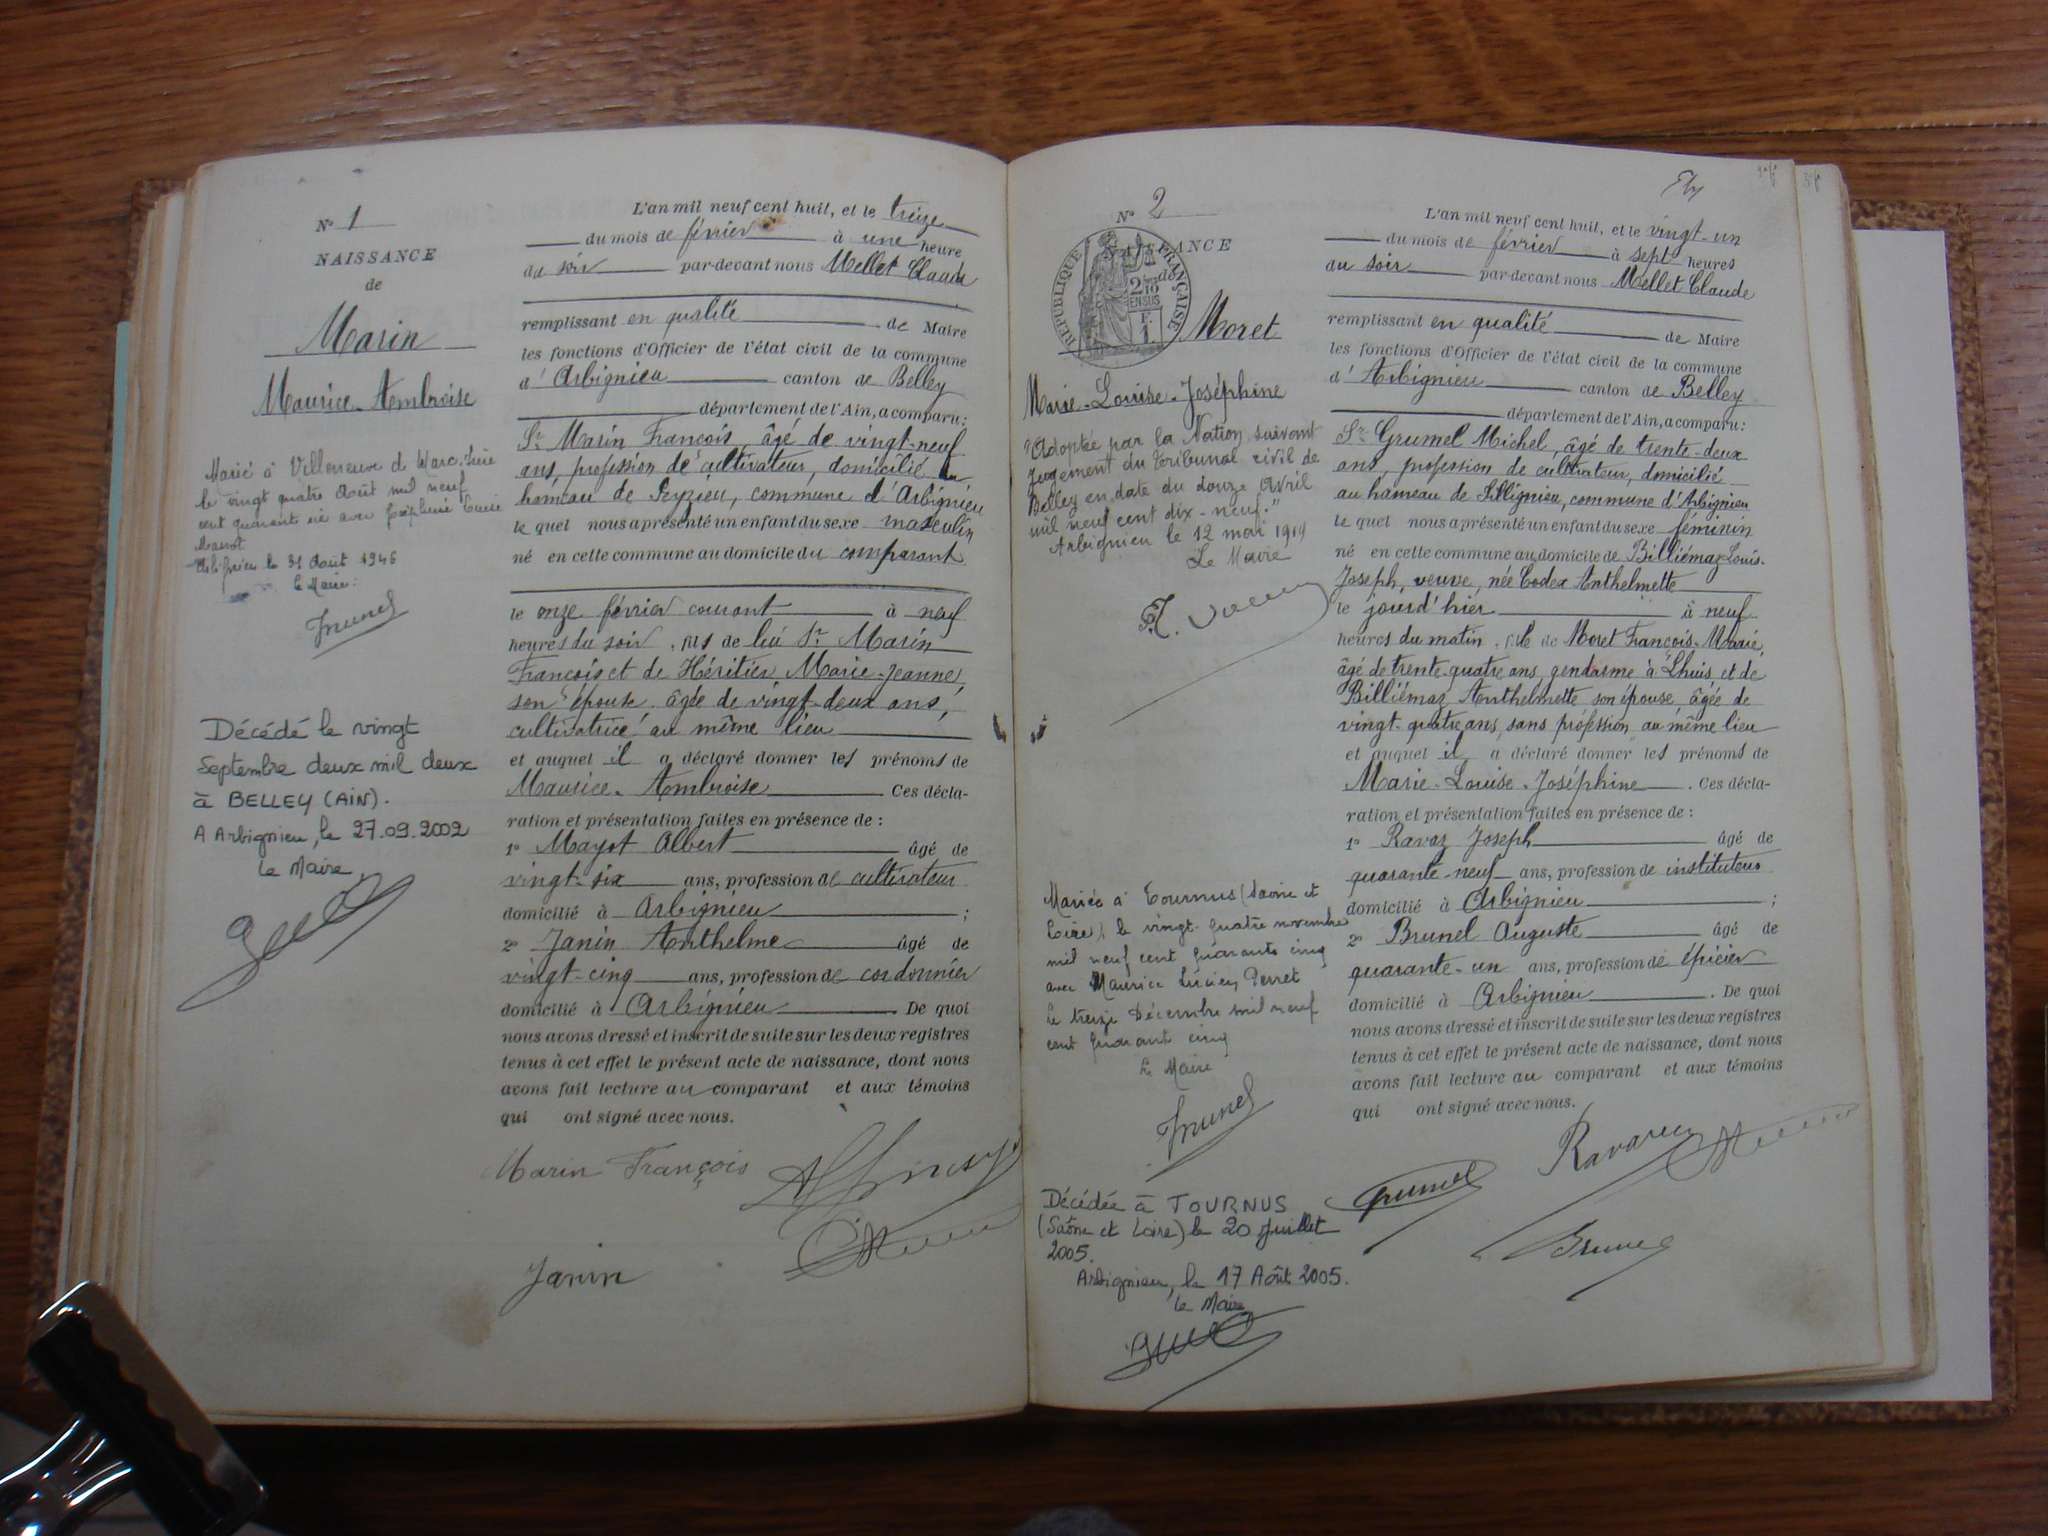 N° 1
NAISSANCE
de
Marin
Maurice-Ambroise
Marié à Villeneuve d
le vingt quatre Août mil neuf
cent quarante six avec Joséphine Louise
Arbignieu le 31 Août 1946
le Maire:
Décédé le vingt
Septembre deux mil deux
à BELLEY (AIN).
A Arbignieu, le 27.09.2002
le Maire,
L'an mil neuf cent huit, et le treize
du mois de février à une heure
du soir par-devant nous Mellet Claude
remplissant en qualité de Maire
les fonctions d'Officier de l'état civil de la commune
d' Arbignieu canton de Belley
département de l'Ain, a comparu:
Sr Marin François, âgé de vingt-neuf
ans, profession de cultivateur, domicilié au
hameau de Peyzieu, commune d'Arbignieu
le quel nous a présenté un enfant du sexe masculin
né en cette commune au domicile du comparant
le onze février courant à neuf
heures du soir, fils de lui Sr Marin
François et de Héritier Marie-Jeanne,
son épouse âgée de vingt-deux ans,
cultivatrice au même lieu
et auquel il a déclaré donner les prénoms de
Maurice-Ambroise Ces décla-
ration et présentation faites en présence de :
1° Mayot Albert âgé de
vingt-six ans, profession de cultivateur
domicilié à Arbignieu ;
2° Janin Anthelme âgé de
vingt-cinq ans, profession de cordonnier
domicilié à Arbignieu . De quoi
nous avons dressé et inscrit de suite sur les deux registres
tenus à cet effet le présent acte de naissance, dont nous
avons fait lecture au comparant et aux témoins
qui ont signé avec nous.
Marin François
Janin
N° 2
NAISSANCE
de
RÉPUBLIQUE FRANÇAISE
2/10 EN SUS
F. 1.
Moret
Marie-Louise-Joséphine
"Adoptée par la Nation suivant
jugement du Tribunal civil de
Belley en date du douze Avril
mil neuf cent dix-neuf."
Arbignieu le 12 mai 1919
Le Maire
Mariée à Tournus (Saône et
Loire) le vingt-quatre novembre
mil neuf cent quarante cinq
avec Maurice Lucien Perret
Le treize Décembre mil neuf
cent quarante cinq
Le Maire
Décédée à TOURNUS
(Saône et Loire) le 20 Juillet
2005.
Arbignieu, le 17 Août 2005.
le Maire
L'an mil neuf cent huit, et le vingt-un
du mois de février à sept heures
du soir par-devant nous Mellet Claude
remplissant en qualité de Maire
les fonctions d'Officier de l'état civil de la commune
d' Arbignieu canton de Belley
département de l'Ain, a comparu:
Sr Grumel Michel, âgé de trente-deux
ans, profession de cultivateur, domicilié
au hameau de Sillignieu, commune d'Arbignieu
le quel nous a présenté un enfant du sexe féminin
né en cette commune au domicile de Billiémaz Louis-
Joseph, veuve, née Codex Anthelmette
le jourd'hier à neuf
heures du matin, fille de Moret François-Marie,
âgé de trente-quatre ans, gendarme à Lhuis et de
Billiémaz Anthelmette son épouse, âgée de
vingt-quatre ans, sans profession au même lieu
et auquel il a déclaré donner les prénoms de
Marie-Louise-Joséphine . Ces décla-
ration et présentation faites en présence de :
1° Ravaz Joseph âgé de
quarante-neuf ans, profession de instituteur
domicilié à Arbignieu ;
2° Brunel Auguste âgé de
quarante-un ans, profession de épicier
domicilié à Arbignieu . De quoi
nous avons dressé et inscrit de suite sur les deux registres
tenus à cet effet le présent acte de naissance, dont nous
avons fait lecture au comparant et aux témoins
qui ont signé avec nous.
Grumel
Brunel